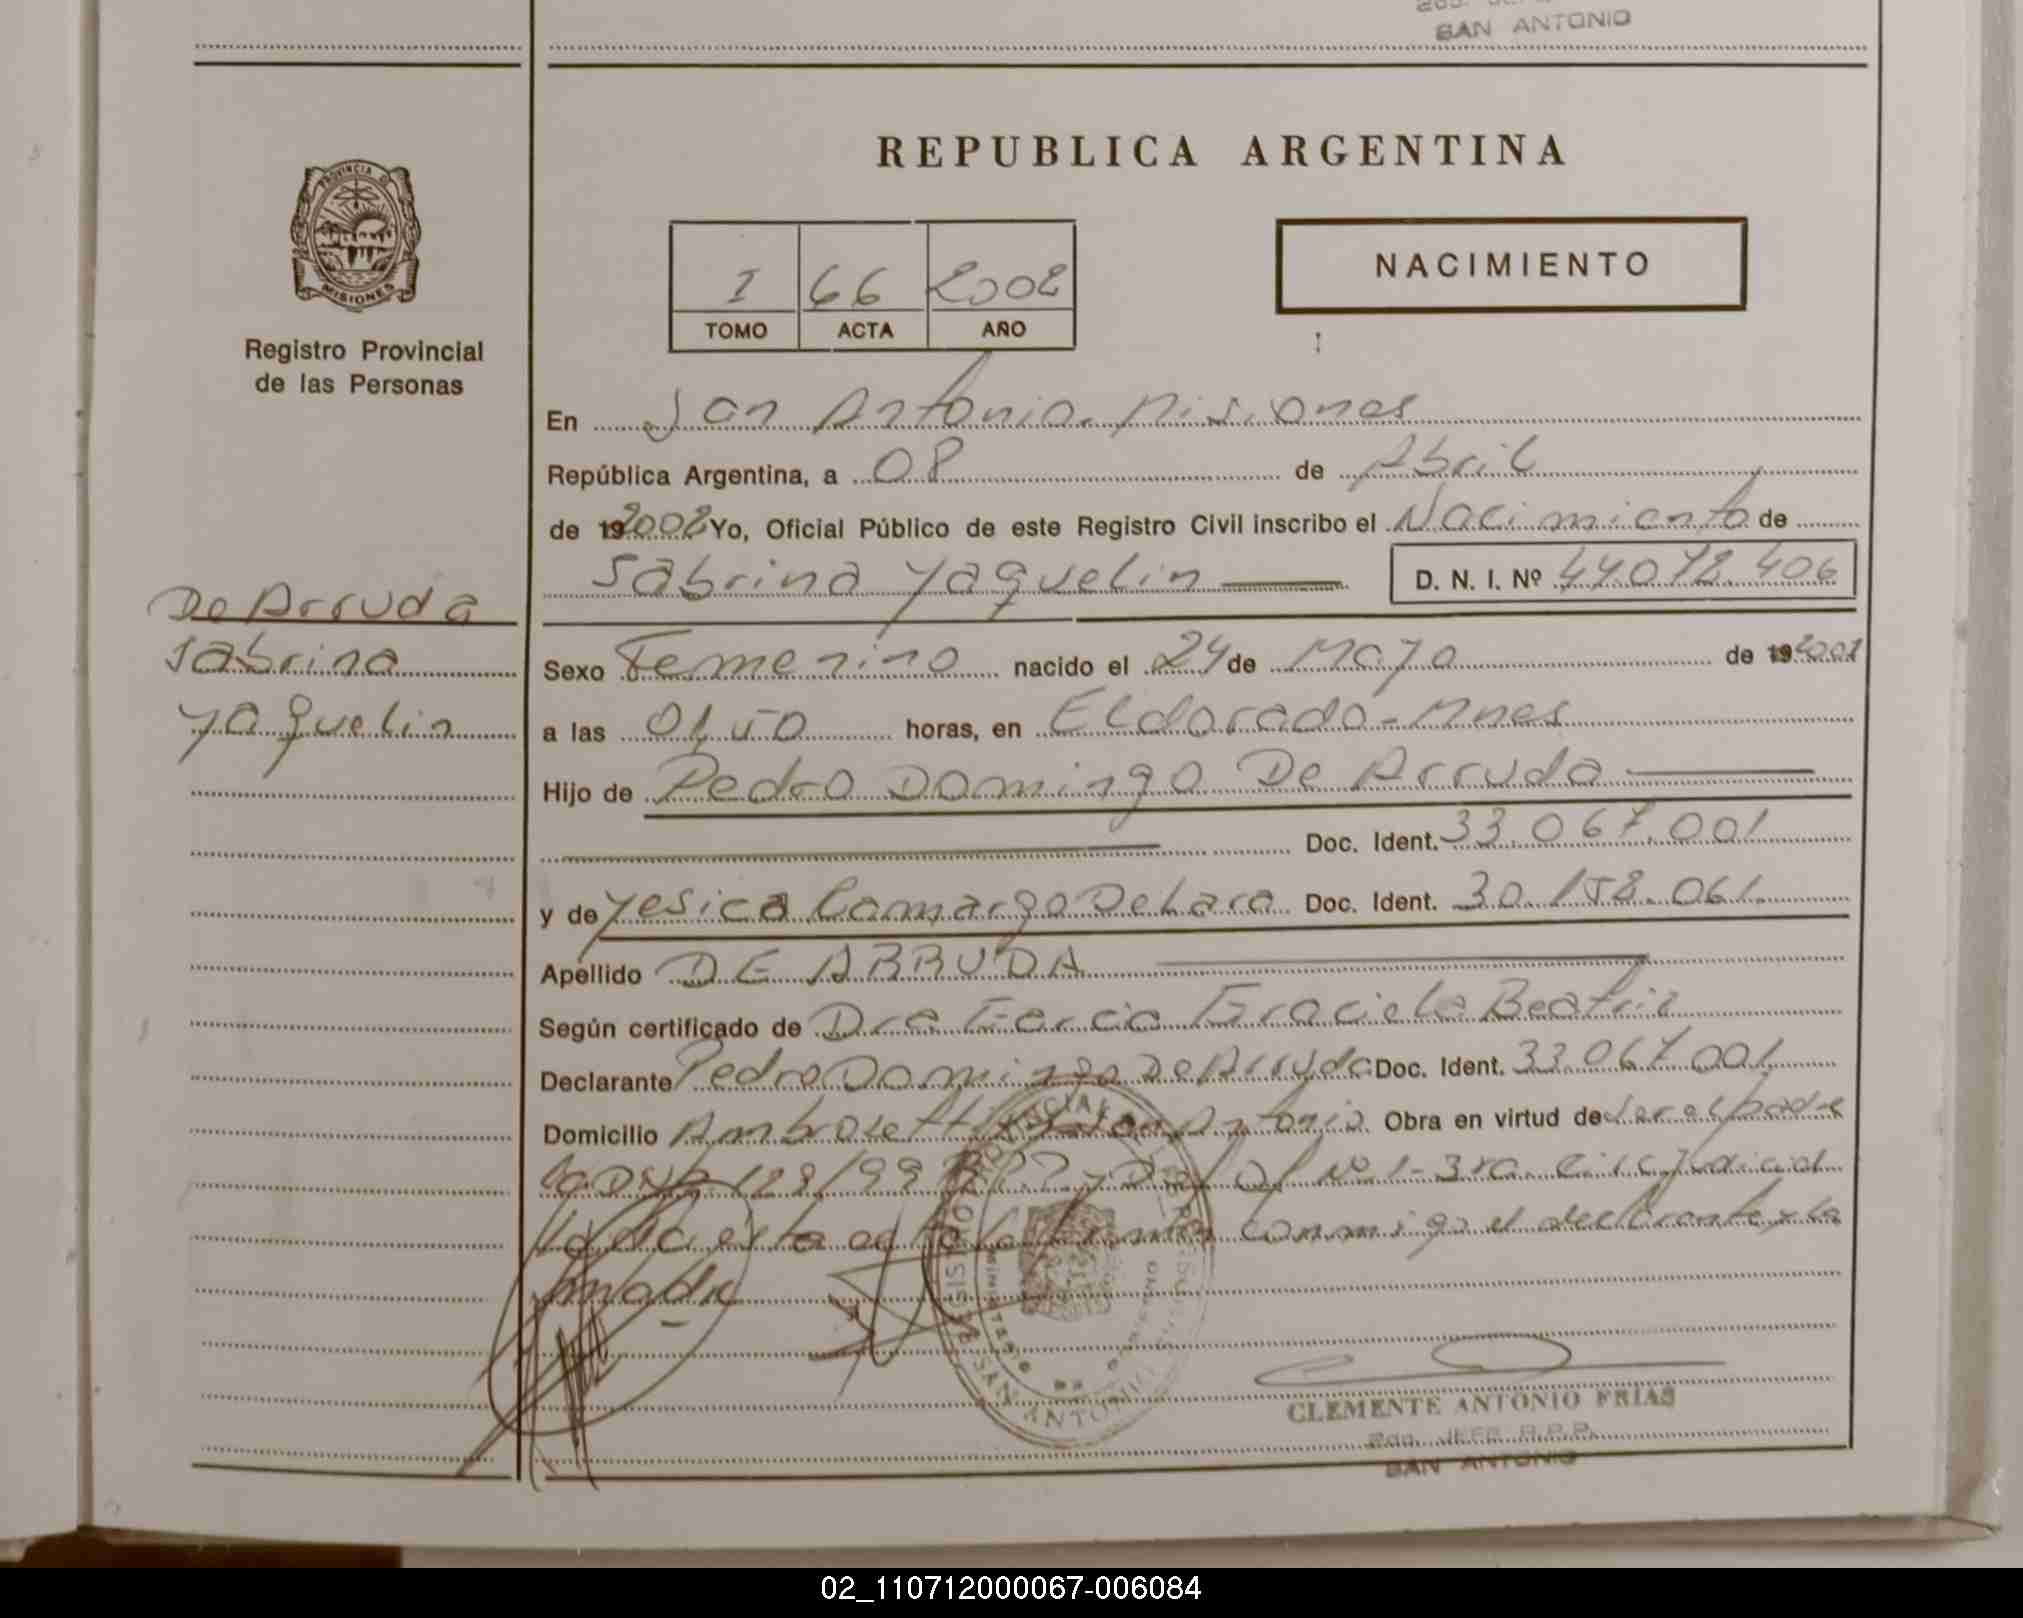 SAN ANTONIO
REPUBLICA ARGENTINA
PROVINCIA DE
MISIONES
Registro Provincial
de las Personas
I 66 2002
TOMO ACTA AÑO
NACIMIENTO
En San Antonio. Misiones
República Argentina, a 08 de Abril
de 19 2002 Yo, Oficial Público de este Registro Civil inscribo el Nacimiento de
Sabrina Yaquelin D. N. I. Nº 44.072.406
De Arruda
Sabrina
Yaquelin
Sexo Femenino nacido el 24 de Mayo de 19 2001
a las 01,50 horas, en Eldorado - Mnes
Hijo de Pedro Domingo De Arruda
Doc. Ident. 33.067.001
y de Yesica Camargo De Lara Doc. Ident. 30.158.061
Apellido DE ARRUDA
Según certificado de Dra Garcia Graciela Beatriz
Declarante Pedro Domingo De Arruda Doc. Ident. 33.067.001
Domicilio Ambrosetti San Antonio Obra en virtud de ser el padre
128/99 Nº 1 - 3ra. Circ Judicial
Leida esta acta la firman conmigo el declarante y la
madre
SAN ANTONIO
CLEMENTE ANTONIO FRIAS
2do. JEFE R.P.P.
SAN ANTONIO
02_110712000067-006084